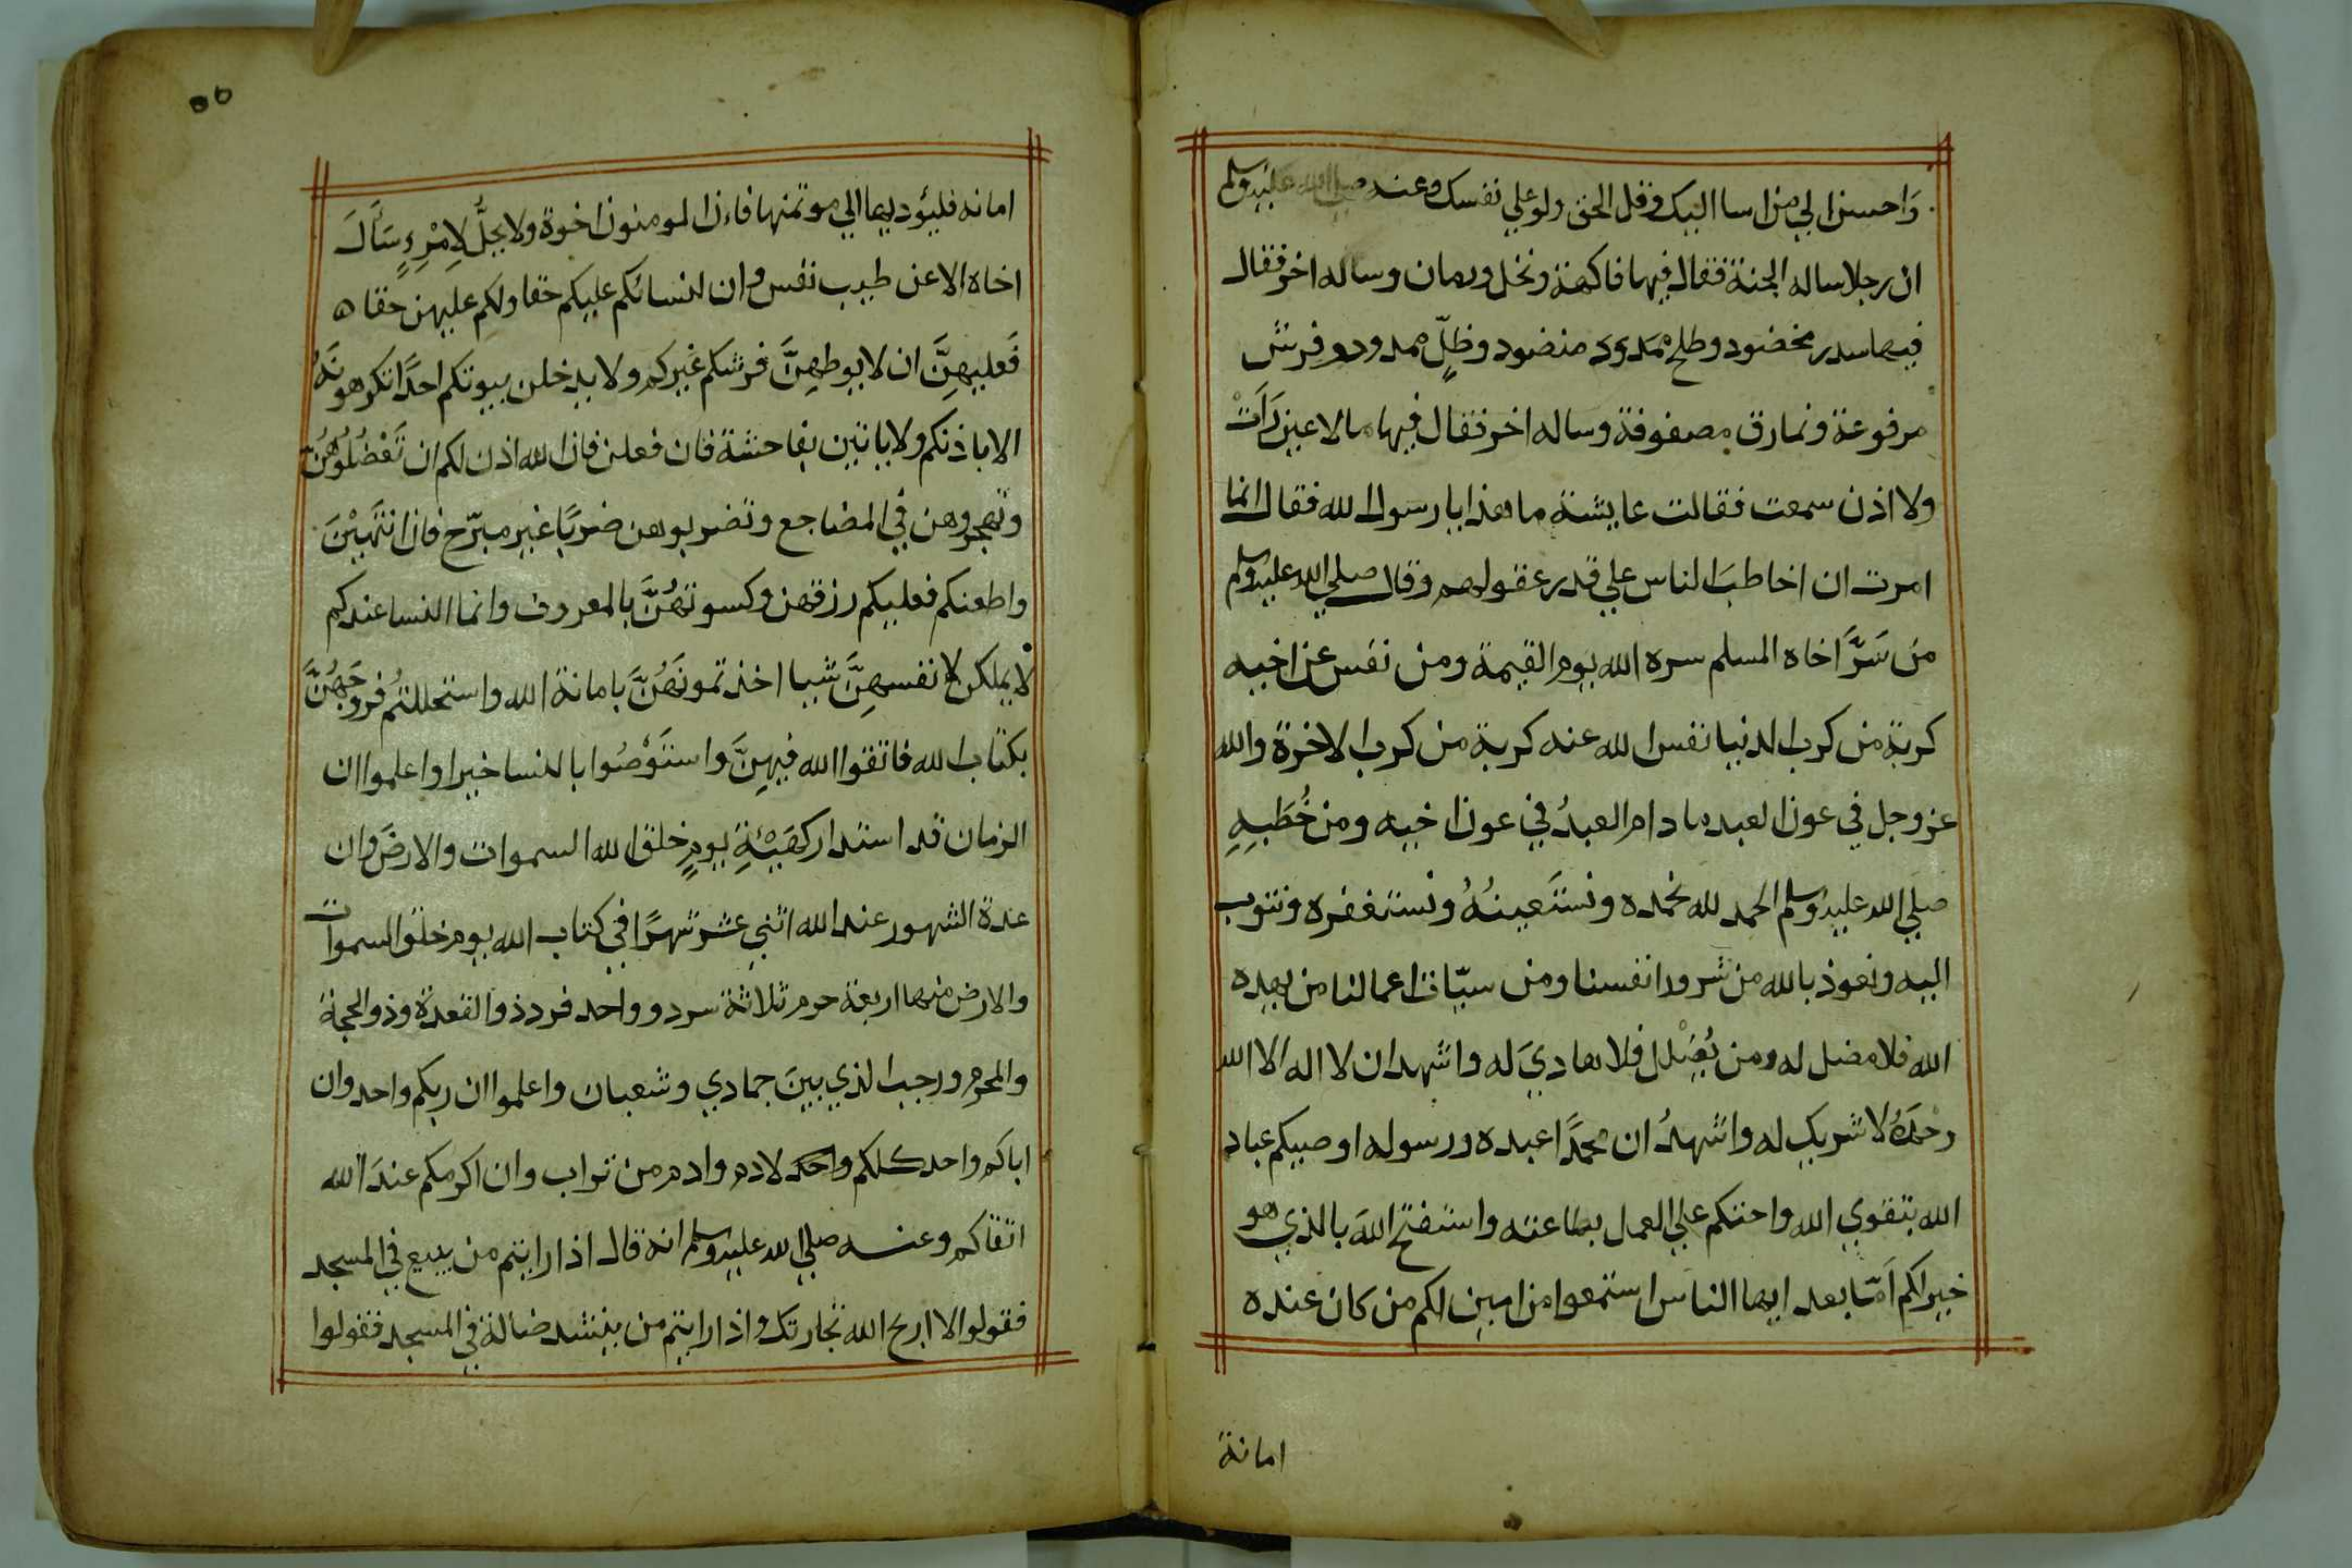 وَاحسن الي من اسا اليك وقل الحق ولو علي نفسك وعنه صلي الله عليه وسلم
ان رجلا ساله الجنة فقال فيها فاكهة ونخل ورمان وساله اخر فقال
فيها سدر مخضود وطلح ممدود منضود وظلٍّ ممدود وفرش
مرفوعة ونمارق مصفوفة وساله اخر فقال فيها ما لا عين رَأَتْ
ولا اذن سمعت فقالت عايشة ما هذا يا رسول الله فقال انما
امرت ان اخاطبَ الناس علي قدر عقولهم وقال صلي الله عليه وسلم
من سَرَّ اخاه المسلم سره الله يوم القيمة ومن نفس عن اخيه
كربة من كرب الدنيا نفس الله عنه كربة من كرب الاخرة والله
عز وجل في عون العبد ما دام العبدُ في عون اخيه ومن خُطَبِهِ
صلي الله عليه وسلم الحمد لله نحمده ونستَعينُهُ ونستغفره ونتوب
اليه ونعوذ بالله من شرور انفسنا ومن سيّات اعمالنا من يهده
الله فلا مضل له ومن يُضْلل فلا هاديَ له واشهد ان لا اله الا الله
وحدَهُ لا شريك له واشهدُ ان محمدًا عبده ورسوله اوصيكم عباد
الله بتقوي الله واحثكم علي العمل بطاعته واستفتح اللهَ بالذي هو
خير لكم اَمّا بعد ايها الناس استمعوا من ابين لكم من كان عنده
امانة
٥٥
امانه فليؤديها الي موتمنها فان المومنون اخوة ولا يحلُّ لاِمْرِءٍ سَأَلَ
اخاه الا عن طيب نفس وان لنسائكم عليكم حقا ولكم عليهن حقا ه
فَعليهنَّ ان لا يوطهِنَّ فرشكم غيركم ولا يدخلن بيوتكم احدًا تكرهونَهُ
الا باذنكم ولا ياتين بفاحشة فان فعلن فان الله اذن لكم ان تَعْضُلُوهُنَّ
وتهجروهن في المضاجع وتضربوهن ضربًا غير مبرّح فان انتَهَيْنَ
واطعنكم فعليكم رزقهن وكسوتهُنَّ بالمعروف وانما النسا عندكم
لا يملكن لانفسهِنَّ شيا اخذتمونَهُنَّ بامانة الله واستحللتُم فروجَهُنَّ
بكتاب الله فاتقوا الله فيهِنَّ واستَوْصُوا بالنسا خيرا واعلموا ان
الزمان قد استدار كهَيْئةِ يومٍ خلق الله السموات والارضَ وان
عدة الشهور عند الله اثني عشر شهرًا في كتاب الله يوم خلق السموات
والارض منها اربعة حرم ثلاثة سرد وواحد فرد ذو القعدة وذو الحجة
والمحرم ورجب الذي بينَ جمادي وشعبان واعلموا ان ربكم واحد وان
اباكم واحد كلكم واحد لادم وادم من تراب وان اكرمكم عندَ الله
اتقاكم وعنه صلي الله عليه وسلم انه قال اذا رايتم من يبيع في المسجد
فقولوا لا اربح الله تجارتك واذا رايتم من ينشد ضالة في المسجد فقولوا